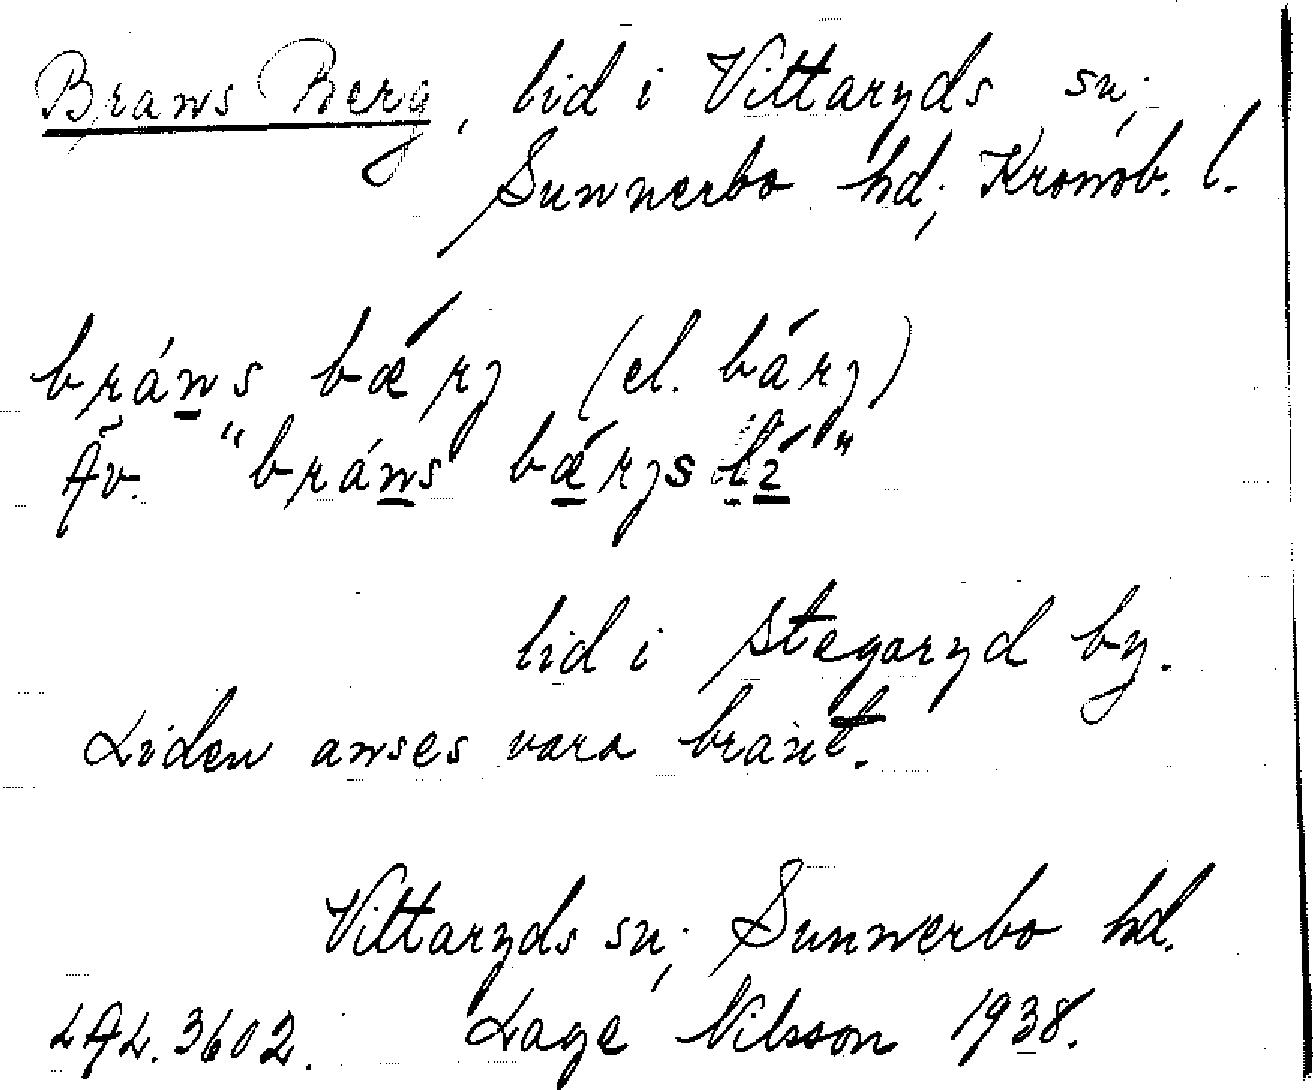 Brans Berg, lid i Vittaryds sn,
Sunnerbo hd, Kronob. l.
bráns bǽrj (el. bárj)
Äv. "bráns bǽrjs lí"
lid i Stegaryd by.
Liden anses vara brant.
Vittaryds sn, Sunnerbo hd.
LAL. 3602. Lage Nilsson 1938.